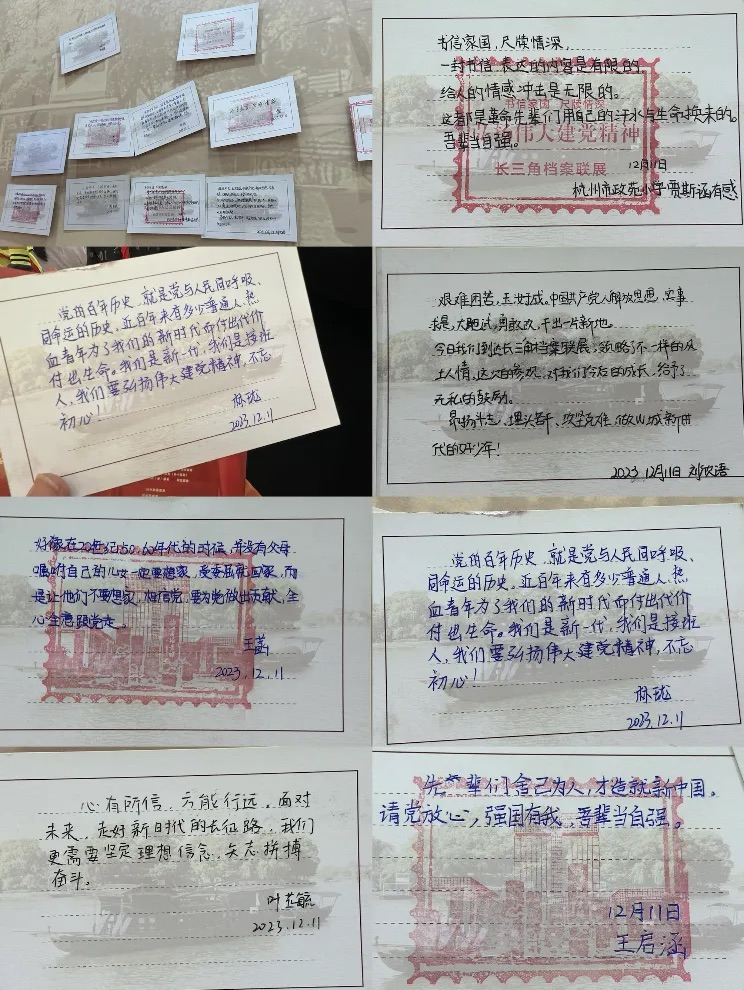 书信家国,尺牍情深,
一封书信,表达的内容是有限的
给人的情感冲击是无限的。
这都是革命先辈们用自己的汗水与生命换来的。
吾辈当自强。
12月11日
杭州市政苑小学贾斯涵有感
书信家国 尺牍情深
弘扬伟大建党精神
长三角档案联展
党的百年历史,就是党与人民同呼吸、
同命运的历史,近百年来有多少普通人、热
血青年为了我们的新时代而付出代价
付出生命。我们是新一代,我们是接班
人,我们要弘扬伟大建党精神,不忘
初心!
林珑
2023.12.11
艰难困苦,玉汝于成。中国共产党人解放思想,实事
求是,大胆试,勇敢改,干出一片新地。
今日我们到达长三角档案联展,领略了不一样的风
土人情,这次的参观,对我们今后的成长,给予了
无私的鼓励。
昂扬斗志,埋头苦干,攻坚克难,做山城新时
代的好少年!
2023 12月11日
好像在20世纪50、60年代的时候,并没有父母
嘱咐自己的儿女一定要想家,受委屈就回家,而
是让他们不要想家,相信党,要为党做出贡献,全
心全意跟党走。
王菡
2023.12.11
党的百年历史,就是党与人民同呼吸、
同命运的历史,近百年来有多少普通人、热
血青年为了我们的新时代而付出代价
付出生命。我们是新一代,我们是接班
人,我们要弘扬伟大建党精神,不忘
初心!
林珑
2023.12.11
心有所信,方能行远。面对
未来,走好新时代的长征路,我们
更需要坚定理想信念,矢志拼搏
奋斗。
叶芷毓
2023.12.11
先辈们舍己为人,才造就新中国。
请党放心,强国有我,吾辈当自强。
12月11日
王启涵